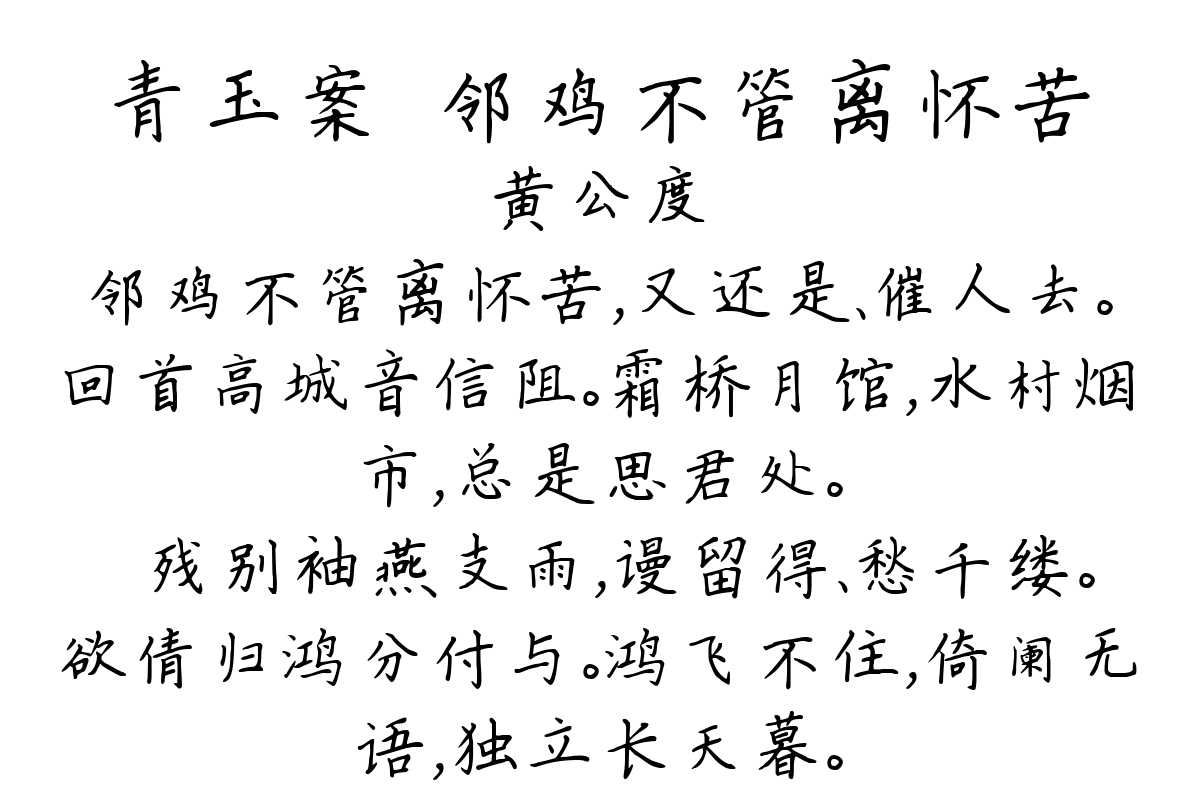 青玉案 邻鸡不管离怀苦
黄公度
邻鸡不管离怀苦,又还是、催人去。
回首高城音信阻。霜桥月馆,水村烟
市,总是思君处。
残别袖燕支雨,谩留得、愁千缕。
欲倩归鸿分付与。鸿飞不住,倚阑无
语,独立长天暮。